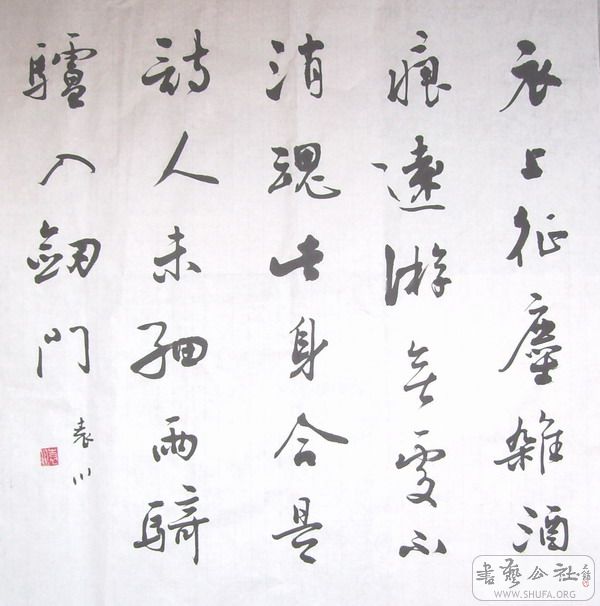 衣上征塵雜酒
痕遠游無處不
消魂此身合是
詩人未細雨騎
驢入劒門
袁川
書藝公社
WWW.SHUFA.ORG